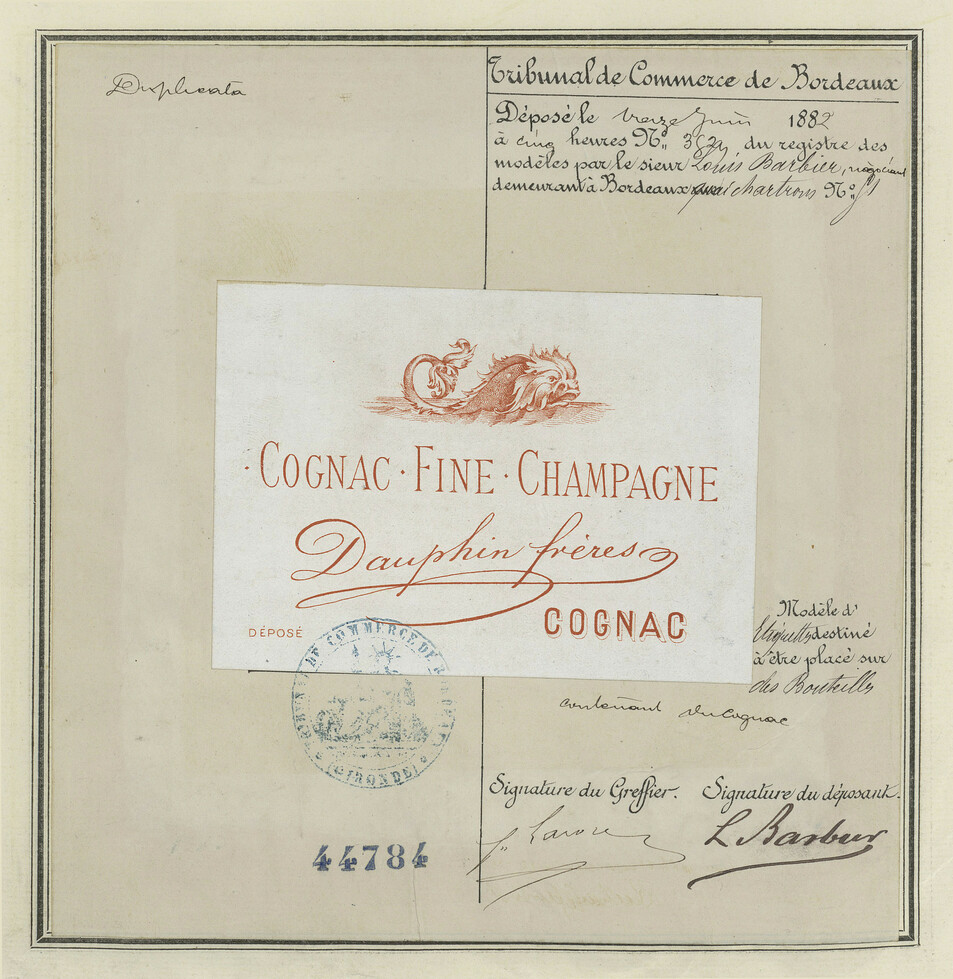 Duplicata
Tribunal de Commerce de Bordeaux
Déposé le treize Juin 1882
à cinq heures No. du registre des
modèles par le sieur Louis Barbier, négociant
demeurant à Bordeaux quai chartrons No.
COGNAC · FINE · CHAMPAGNE
Dauphin frères
COGNAC
DÉPOSÉ
Modèle d'
Etiquette destiné
à être placé sur
des Bouteilles
contenant du Cognac
TRIBUNAL DE COMMERCE DE BORDEAUX
(GIRONDE)
Signature du Greffier. Signature du déposant.
L Barbier
44784